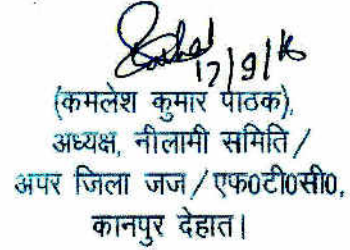 17/9/16
(कमलेश कुमार पाठक),
अध्यक्ष, नीलामी समिति /
अपर जिला जज / एफ0टी0सी0,
कानपुर देहात।